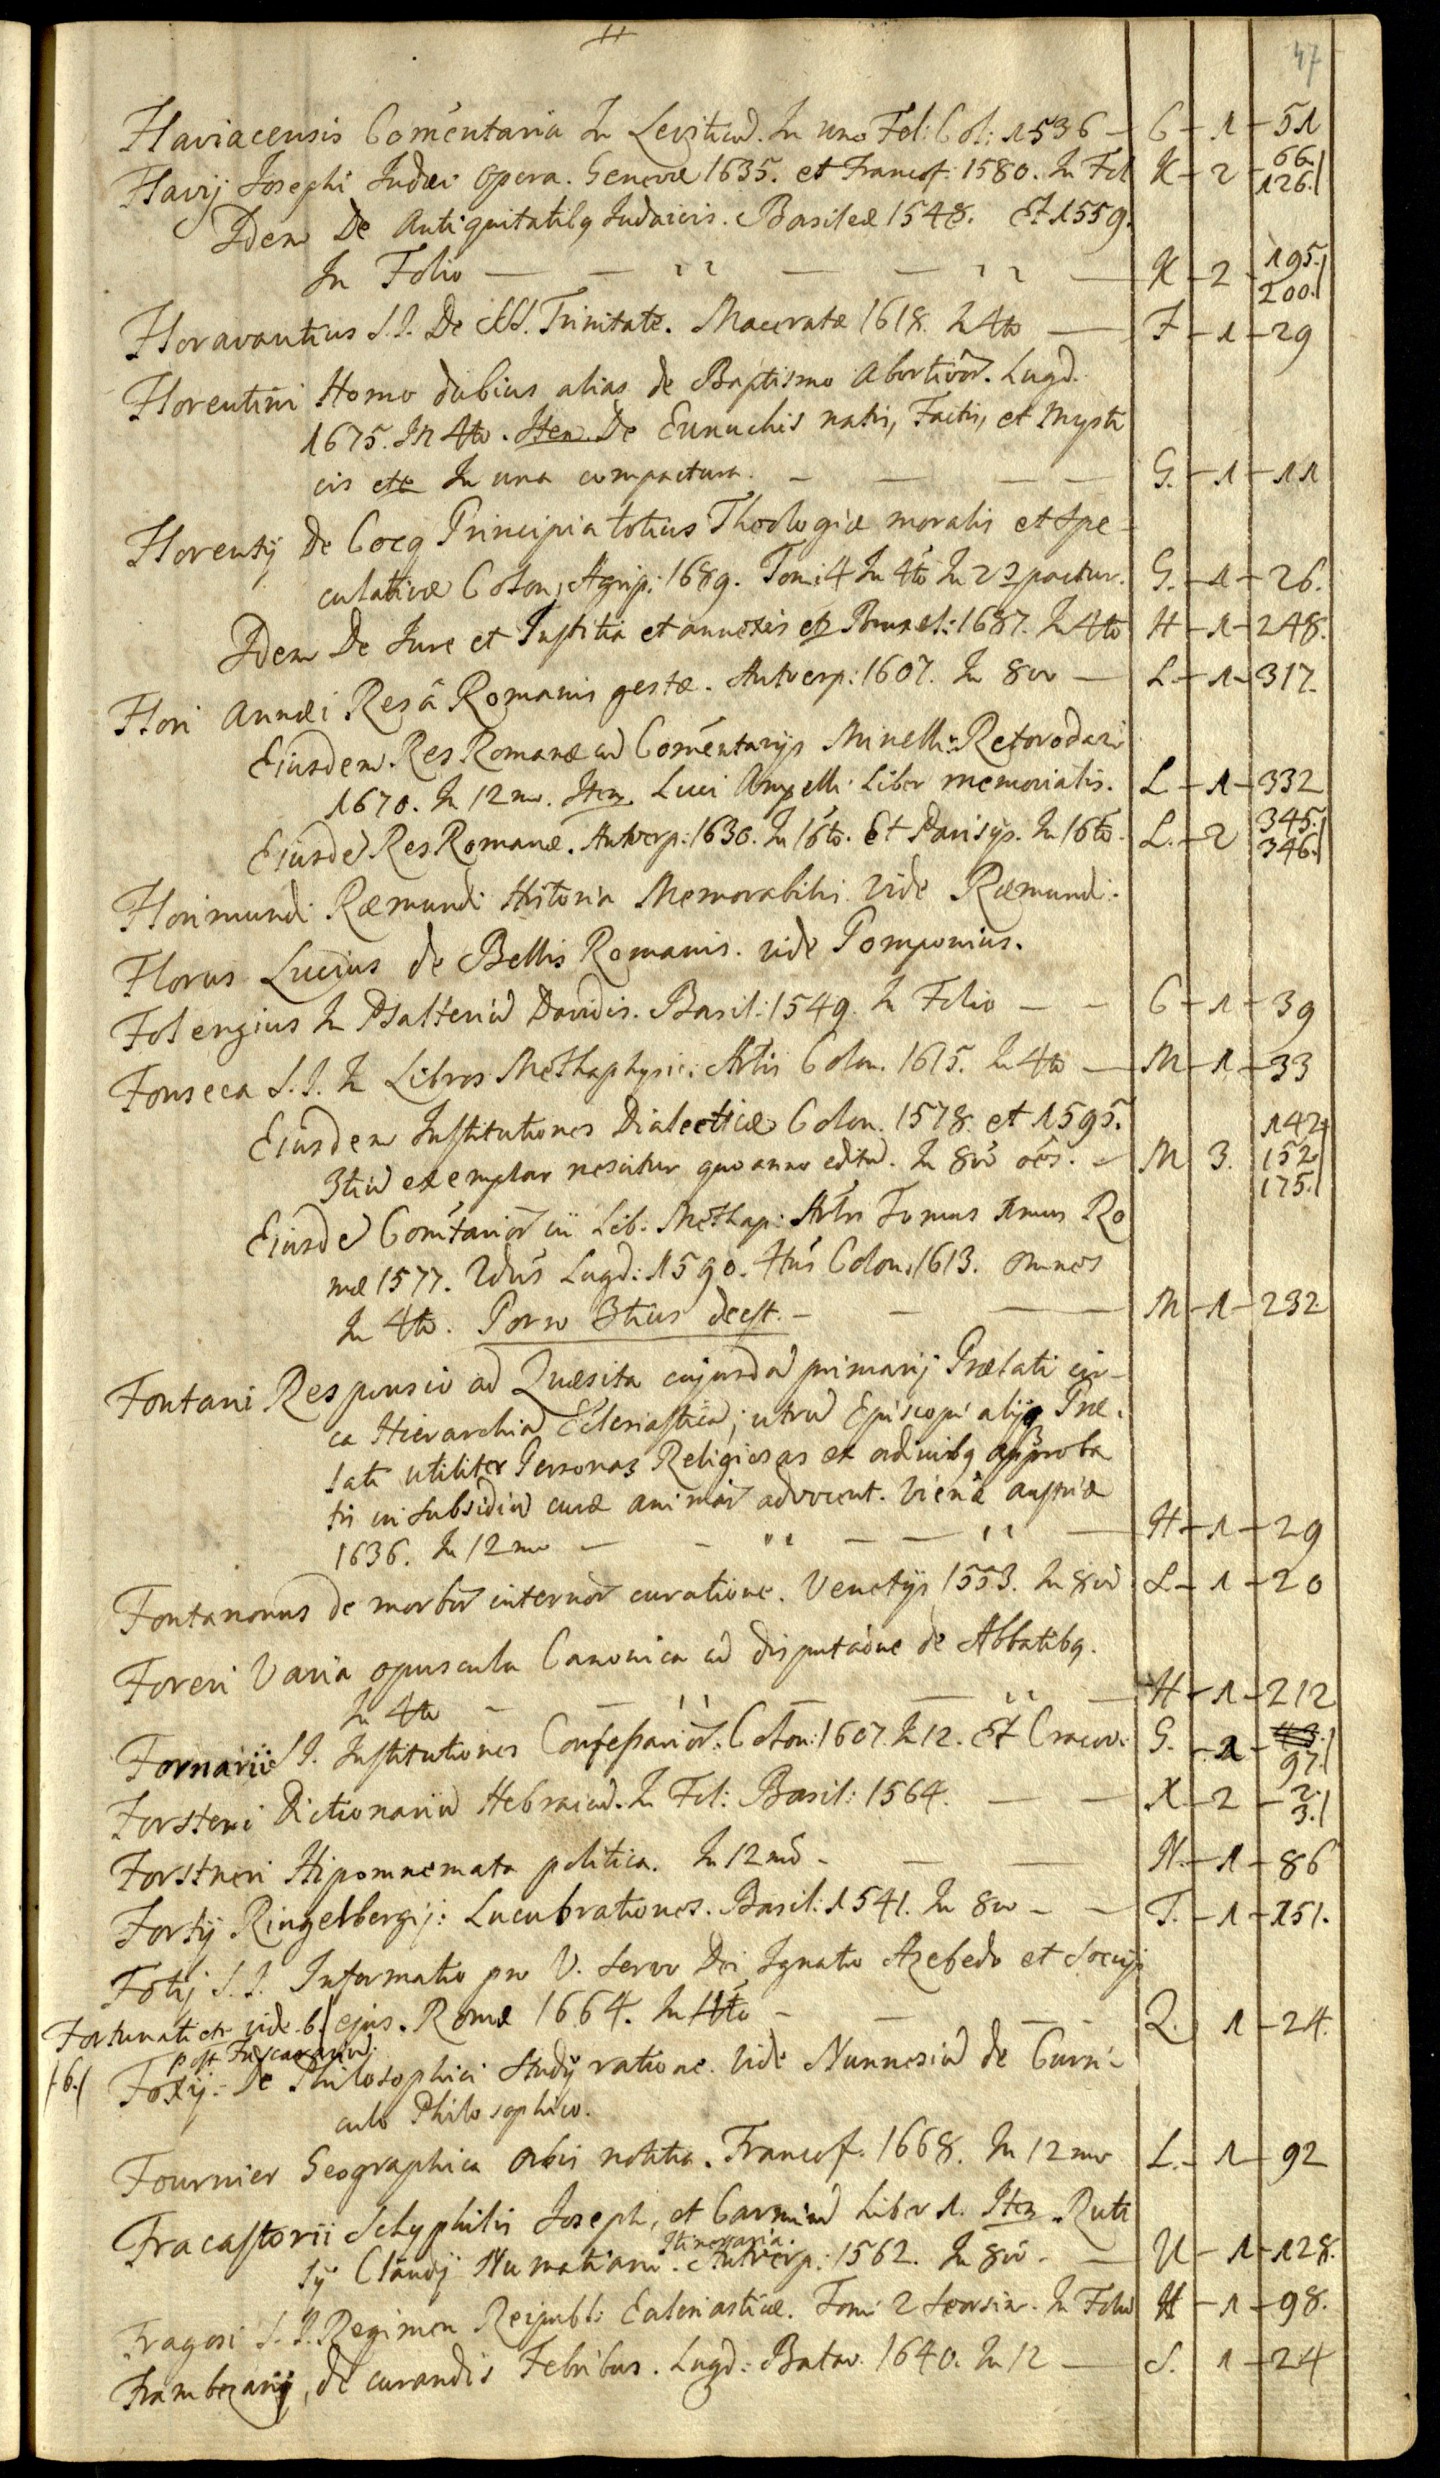 47
Flaviacensis Coméntaria In Leviticũ. In uno Fol: Col: 1536 — C — 1 — 51
Flavij Josephi Judæi Opera. Genevæ 1635. et Francof: 1580. In Fol K — 2 — 66. 126.
Idem De Antiquitatibq Judaicis. Basileæ 1548. Et 1559.
In Folio — — — — — K — 2 — 195. 200.
Floravantius S.J. De SS. Trinitate. Maceratæ 1618. In 4to — F — 1 — 29
Florentini Homo dubius alias de Baptismo Abortivor̃. Lugd.
1675. In 4to. Item De Eunuchis natis, Factis, et Mysti
cis etc In una compactura. — — — G. — 1 — 11
Florentij De Cocq Principia totius Theologiæ moralis et Spe-
culativæ Colon: Agrip: 1689. Tomi 4 In 4to In 2 compactur. G. — 1 — 26.
Idem De Jure et Justitia et annexis etc Bruxel: 1687. In 4to H — 1 — 248.
Flori Annæi Res â Romanis gestæ. Antverp: 1607. In 8vo — L — 1 — 317.
Eiusdem Res Romanæ cũ Coméntarijs Minelli: Rotorodami
1670. In 12mo. Item Lucii Ampelli Liber memorialis. L — 1 — 332
Eiusdẽ Res Romanæ. Antverp: 1630. In 16to. Et Parisijs. In 16to. L. — 2 345. 346.
Florimundi Ræmundi Historia Memorabilis vide Ræmundi.
Florus Lucius de Bellis Romanis. vide Pomponius.
Folengius In Psalteriũ Davidis. Basil: 1549. In Folio — — C — 1 — 39
Fonseca S.J. In Libros Methaphysic: Artis Colon. 1615. In 4to — M — 1 — 33
Eiusdem Institutiones Dialecticæ Colon. 1578. et 1595.
3tiũ exemplar nescitur quo anno editũ. In 8vo oẽs. — M 3. 142. 152. 175.
Eiusdẽ Coméntarior̃ in Lib. Methap: Artis Tomus 1mus Ro
mæ 1577. 2dus Lugd: 1590. 4tus Colon: 1613. omnes
In 4to. Porro 3tius deest. — — — M — 1 — 232
Fontani Responsio ad Quæsita cujusdã primarij Prælati cir-
ca Hierarchiã Ecclesiasticã; utrũ Episcopi alijq Præ-
lati utiliter Personas Religiosas ex ordinibq approba
tis in subsidiũ curæ animar̃ advocent. Viennæ Austriæ
1636. In 12mo — — — — H — 1 — 29
Fontanonus de morbor̃ internor̃ curatione. Venetijs 1553. In 8vo L — 1 — 20
Foreri Varia opuscula Canonica cũ disputaõne de Abbatibq.
In 4to — — — — H — 1 — 212
Fornarii S.J. Institutiones Confessarior̃. Colon: 1607. In 12. Et Cracov: G. — 2 — 97.
Forsteri Dictionariũ Hebraicũ. In Fol: Basil: 1564. — — X — 2 — 2. 3.
Forstneri Hipomnemata politica. In 12mo — — — N. — 1 — 86
Fortij Ringelbergij: Lucubrationes. Basil: 1541. In 8vo — — T. — 1 — 151.
Fotij S.J. Informatio pro V. Servo Dei Ignatio Azebedo et Socijs
ejus. Romæ 1664. In 4to — — — — Q. 1 — 24.
Fortunati etc vide 6.
post Fuscararium.
/6./
Foxij: De Philosophici Studij ratione. Vide Nunnesiũ de Curri-
culo Philosophico.
Fournier Geographica Orbis notitia. Francof. 1668. In 12mo L. — 1 — 92
Fracastorii Schyphilis Joseph, et Carminũ Liber 1. Item Ruti
lij Claudij Numatiani Itineraria. Antverp: 1562. In 8vo — — U — 1 — 128.
Fragosi S.J. Regimen Reipubl: Ecclesiasticæ. Tomi 2 seorsim. In Folio H — 1 — 98.
Frambezarij, de curandis Febribus. Lugd: Batav. 1640. In 12 — S. 1 — 24